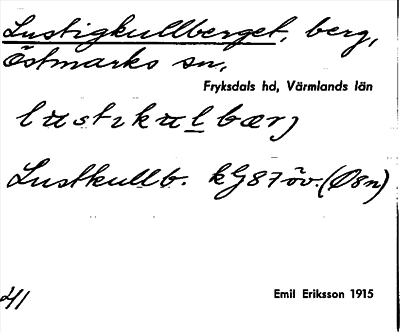 Lustigkullberget, berg,
Östmarks sn,
Fryksdals hd, Värmlands län
lustikulbærj
Lustkullb. kG87öv. (Ø8n)
41
Emil Eriksson 1915